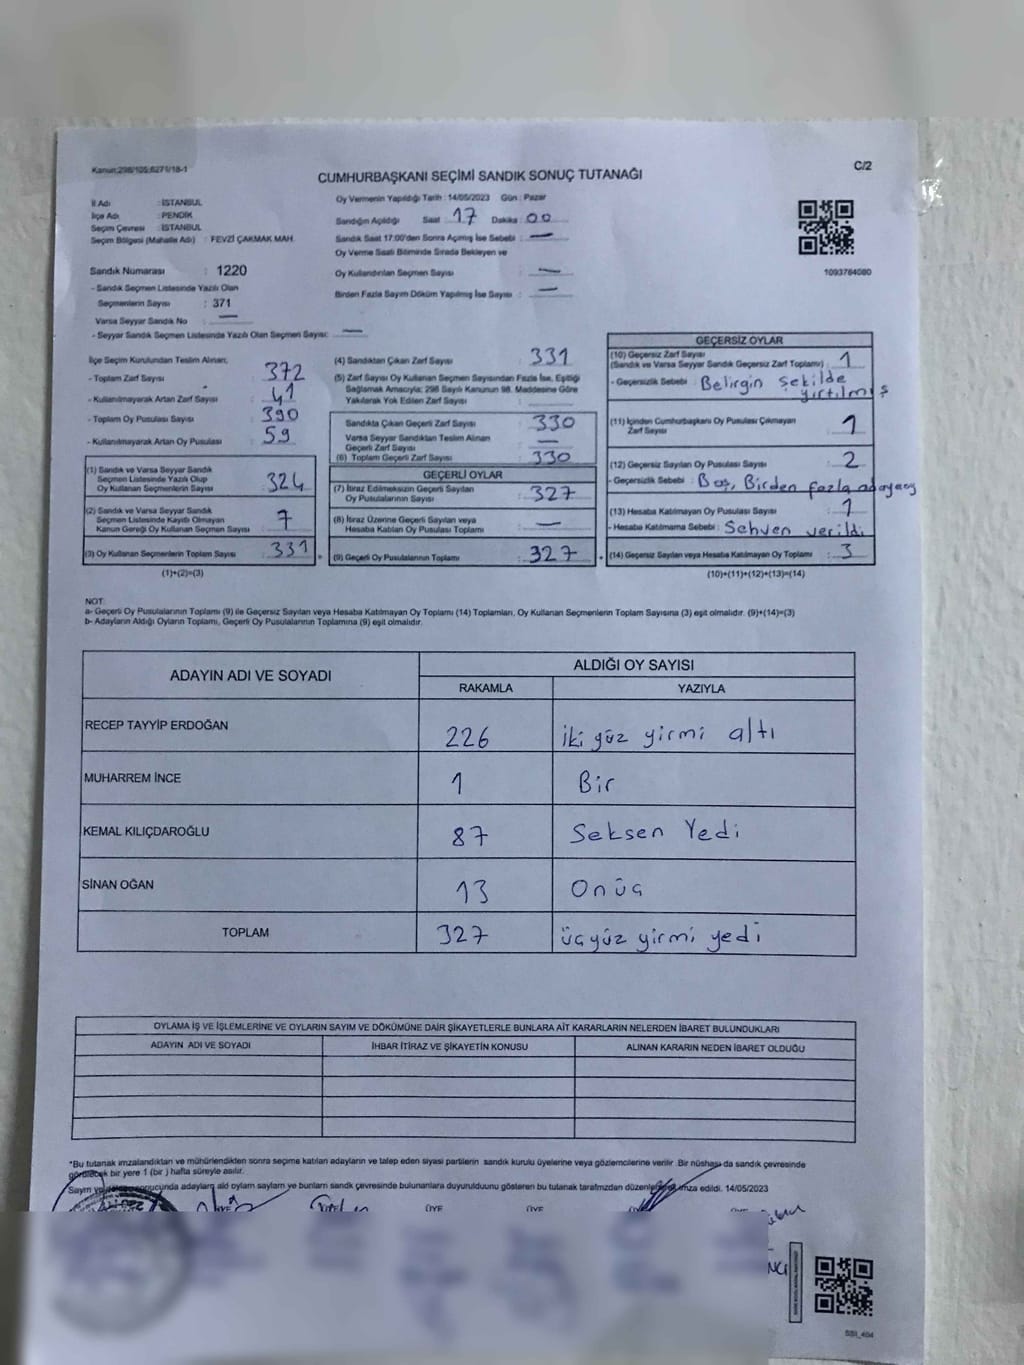 Kanun:298/105;6271/18-1
C/2
CUMHURBAŞKANI SEÇİMİ SANDIK SONUÇ TUTANAĞI
İl Adı : İSTANBUL
İlçe Adı : PENDİK
Seçim Çevresi : İSTANBUL
Seçim Bölgesi (Mahalle Adı) : FEVZİ ÇAKMAK MAH.
Sandık Numarası : 1220
- Sandık Seçmen Listesinde Yazılı Olan
Seçmenlerin Sayısı : 371
Varsa Seyyar Sandık No : —
- Seyyar Sandık Seçmen Listesinde Yazılı Olan Seçmen Sayısı: —
Oy Vermenin Yapıldığı Tarih : 14/05/2023 Gün : Pazar
Sandığın Açıldığı Saat : 17 Dakika : 00
Sandık Saat 17:00'den Sonra Açılmış İse Sebebi : —
Oy Verme Saati Bitiminde Sırada Bekleyen ve
Oy Kullandırılan Seçmen Sayısı : —
Birden Fazla Sayım Döküm Yapılmış İse Sayısı : —
1093764080
İlçe Seçim Kurulundan Teslim Alınan;
- Toplam Zarf Sayısı : 372
- Kullanılmayarak Artan Zarf Sayısı : 41
- Toplam Oy Pusulası Sayısı : 390
- Kullanılmayarak Artan Oy Pusulası : 59
(1) Sandık ve Varsa Seyyar Sandık
Seçmen Listesinde Yazılı Olup
Oy Kullanan Seçmenlerin Sayısı : 324
(2) Sandık ve Varsa Seyyar Sandık
Seçmen Listesinde Kayıtlı Olmayan
Kanun Gereği Oy Kullanan Seçmen Sayısı : 7
(3) Oy Kullanan Seçmenlerin Toplam Sayısı : 331
(1)+(2)=(3)
(4) Sandıktan Çıkan Zarf Sayısı : 331
(5) Zarf Sayısı Oy Kullanan Seçmen Sayısından Fazla İse, Eşitliği
Sağlamak Amacıyla; 298 Sayılı Kanunun 98. Maddesine Göre
Yakılarak Yok Edilen Zarf Sayısı :
Sandıkta Çıkan Geçerli Zarf Sayısı : 330
Varsa Seyyar Sandıktan Teslim Alınan
Geçerli Zarf Sayısı : —
(6) Toplam Geçerli Zarf Sayısı : 330
GEÇERLİ OYLAR
(7) İtiraz Edilmeksizin Geçerli Sayılan
Oy Pusulalarının Sayısı : 327
(8) İtiraz Üzerine Geçerli Sayılan veya
Hesaba Katılan Oy Pusulası Toplamı : —
(9) Geçerli Oy Pusulalarının Toplamı : 327
GEÇERSİZ OYLAR
(10) Geçersiz Zarf Sayısı
(Sandık ve Varsa Seyyar Sandık Geçersiz Zarf Toplamı) : 1
- Geçersizlik Sebebi : Belirgin şekilde
yırtılmış
(11) İçinden Cumhurbaşkanı Oy Pusulası Çıkmayan
Zarf Sayısı : 1
(12) Geçersiz Sayılan Oy Pusulası Sayısı : 2
- Geçersizlik Sebebi : Boş, Birden fazla
(13) Hesaba Katılmayan Oy Pusulası Sayısı : 1
- Hesaba Katılmama Sebebi : Sehven verildi
(14) Geçersiz Sayılan veya Hesaba Katılmayan Oy Toplamı : 3
(10)+(11)+(12)+(13)=(14)
NOT:
a- Geçerli Oy Pusulalarının Toplamı (9) ile Geçersiz Sayılan veya Hesaba Katılmayan Oy Toplamı (14) Toplamları, Oy Kullanan Seçmenlerin Toplam Sayısına (3) eşit olmalıdır. (9)+(14)=(3)
b- Adayların Aldığı Oyların Toplamı, Geçerli Oy Pusulalarının Toplamına (9) eşit olmalıdır.
ADAYIN ADI VE SOYADI
ALDIĞI OY SAYISI
RAKAMLA YAZIYLA
RECEP TAYYİP ERDOĞAN 226 iki yüz yirmi altı
MUHARREM İNCE 1 Bir
KEMAL KILIÇDAROĞLU 87 Seksen Yedi
SİNAN OĞAN 13 Onüç
TOPLAM 327 üçyüz yirmi yedi
OYLAMA İŞ VE İŞLEMLERİNE VE OYLARIN SAYIM VE DÖKÜMÜNE DAİR ŞİKAYETLERLE BUNLARA AİT KARARLARIN NELERDEN İBARET BULUNDUKLARI
ADAYIN ADI VE SOYADI İHBAR İTİRAZ VE ŞİKAYETİN KONUSU ALINAN KARARIN NEDEN İBARET OLDUĞU
*Bu tutanak imzalandıktan ve mühürlendikten sonra seçime katılan adayların ve talep eden siyasi partilerin sandık kurulu üyelerine veya gözlemcilerine verilir .Bir nüshası da sandık çevresinde
görülecek bir yere 1 (bir ) hafta süreyle asılır.
Sayım ve sonucunda adayların aldı oyların sayılarn ve bunların sandk çevresinde bulunanlara duyurulduunu gösteren bu tutanak tarafmzdan imza edildi. 14/05/2023
ÜYE ÜYE ÜYE
SSİ_404